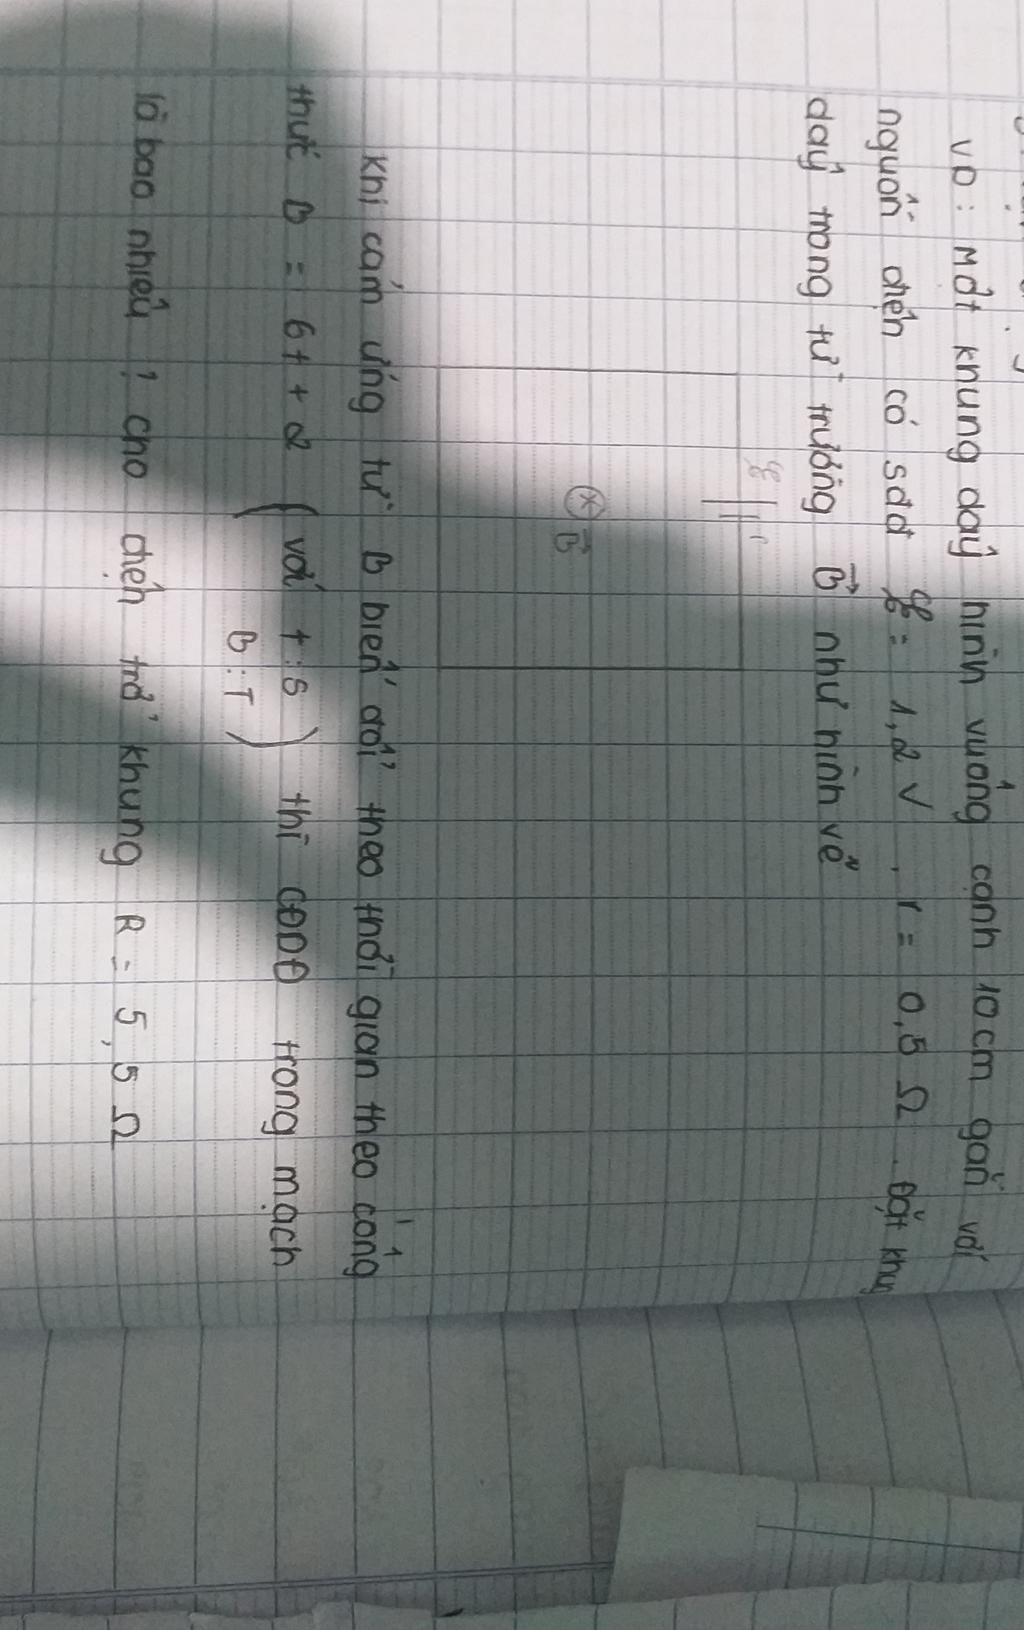 VD: Một khung dây hình vuông cạnh 10cm gắn với
nguồn điện có sđđ ℰ = 1,2 V, r = 0,5 Ω. Đặt khung
dây trong từ trường B⃗ như hình vẽ
ℰ r
B⃗
Khi cảm ứng từ B biến đổi theo thời gian theo công
thức B = 6t + 2 (với t:s
B:T) thì CĐDĐ trong mạch
là bao nhiêu? cho điện trở khung R = 5,5 Ω